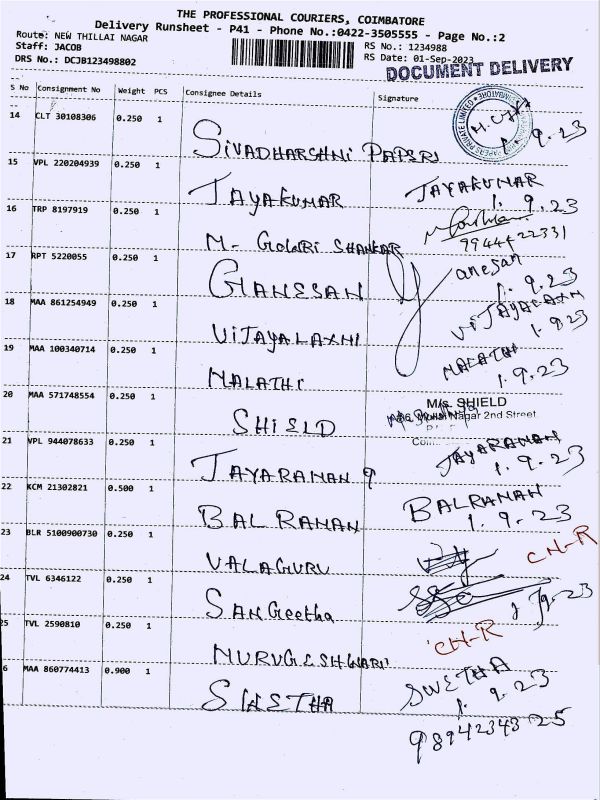 THE PROFESSIONAL COURIERS, COIMBATORE
Delivery Runsheet - P41 - Phone No.:0422-3505555 - Page No.:2
Route: NEW THILLAI NAGAR RS No.: 1234988
Staff: JACOB RS Date: 01-Sep-2023
DRS No.: DCJB123498802 DOCUMENT DELIVERY
S No Consignment No Weight PCS Consignee Details Signature
14 CLT 30108306 0.250 1
SIVADHARSHNI PAPERS 1.9.23
15 VPL 220204939 0.250 1
JAYAKUMAR JAYAKUMAR
1.9.23
16 TRP 8197919 0.250 1
M- GOWRI SHANKAR 9944422331
17 RPT 5220055 0.250 1
GANESAN Ganesan
1.9.23
18 MAA 861254949 0.250 1
VIJAYALAXMI VIJAYALAXMI
1.9.23
19 MAA 100340714 0.250 1
MALATHI MALATHI
1.9.23
20 MAA 571748554 0.250 1
SHIELD M/s. SHIELD
Nagar 2nd Street
21 VPL 944078633 0.250 1
JAYARAMAN JAYARAMAN
1.9.23
22 KCM 21302821 0.500 1
BALRAMAN BALRAMAN
1.9.23
23 BLR 5100900730 0.250 1
VALAGURU CN-R
24 TVL 6346122 0.250 1
SANGeetha 1.9.23
25 TVL 2590810 0.250 1
MURUGESHWARI CN-R
6 MAA 860774413 0.900 1
SWETHA SWETHA
1.9.23
9894234325